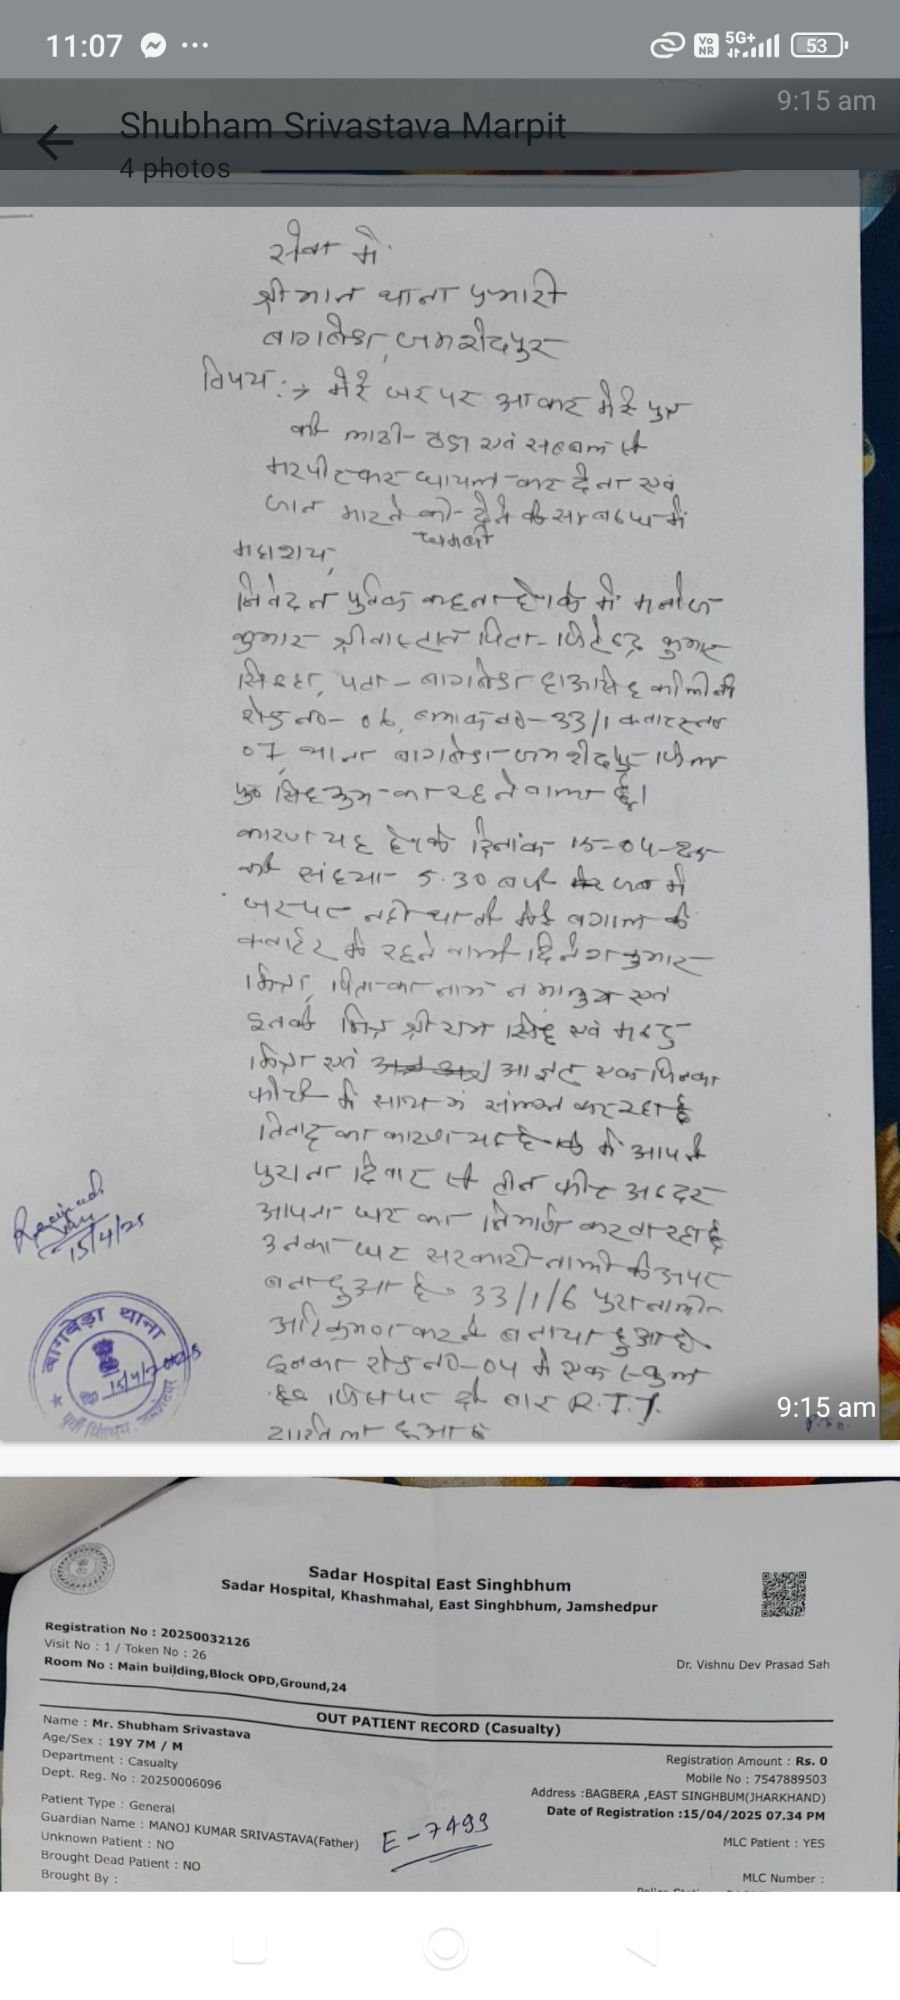 11:07
5G+
Vo NR
53
9:15 am
Shubham Srivastava Marpit
4 photos
सेवा में
श्रीमान थाना प्रभारी
बागबेड़ा, जमशेदपुर
विषय :→ मेरे घर पर आकर मेरे पुत्र
को लाठी-डंडा एवं
मारपीटकर घायल कर देना एवं
जान मारने की देने के सम्बन्ध में
धमकी
महाशय,
निवेदन पूर्वक कहना है कि मैं मनोज
कुमार श्रीवास्तव पिता- कुमार
सिन्हा, पता- बागबेड़ा कॉलोनी
रोड नं०- 06, नं०-33/1
07, थाना बागबेड़ा जमशेदपुर जिला
पू० सिंहभूम का रहने वाला हूँ।
कारण यह है कि दिनांक 15-04-25
को संध्या 5.30 बजे जब मैं
घर पर नहीं था तो मेरे बगल के
क्वार्टर के रहने वाले दिनेश कुमार
मिश्रा, पिता का नाम न मालूम एवं
इनके मित्र श्री राम सिंह एवं
मिश्रा एवं
विवाद का कारण यह है कि मैं अपने
पुराना दिवार से तीन फीट अन्दर
अपना घर का निर्माण करवा रहा हूँ
उनका घर सरकारी नाली के ऊपर
बना हुआ है 33/1/6 पुरा नाली
अतिक्रमण करके बनाया हुआ है
इनका रोड नं०-04 में एक स्कूल
है जिसपर दो बार R.T.I.
हुआ है
Received
15/4/25
बागबेड़ा थाना
15/4/2025
पूर्वी सिंहभूम, जमशेदपुर
9:15 am
Sadar Hospital East Singhbhum
Sadar Hospital, Khashmahal, East Singhbhum, Jamshedpur
Registration No : 20250032126
Visit No : 1 / Token No : 26
Room No : Main building,Block OPD,Ground,24
Dr. Vishnu Dev Prasad Sah
OUT PATIENT RECORD (Casualty)
Name : Mr. Shubham Srivastava
Age/Sex : 19Y 7M / M
Department : Casualty
Dept. Reg. No : 20250006096
Patient Type : General
Guardian Name : MANOJ KUMAR SRIVASTAVA(Father)
Unknown Patient : NO
Brought Dead Patient : NO
Brought By :
E-7499
Registration Amount : Rs. 0
Mobile No : 7547889503
Address :BAGBERA ,EAST SINGHBUM(JHARKHAND)
Date of Registration :15/04/2025 07.34 PM
MLC Patient : YES
MLC Number :